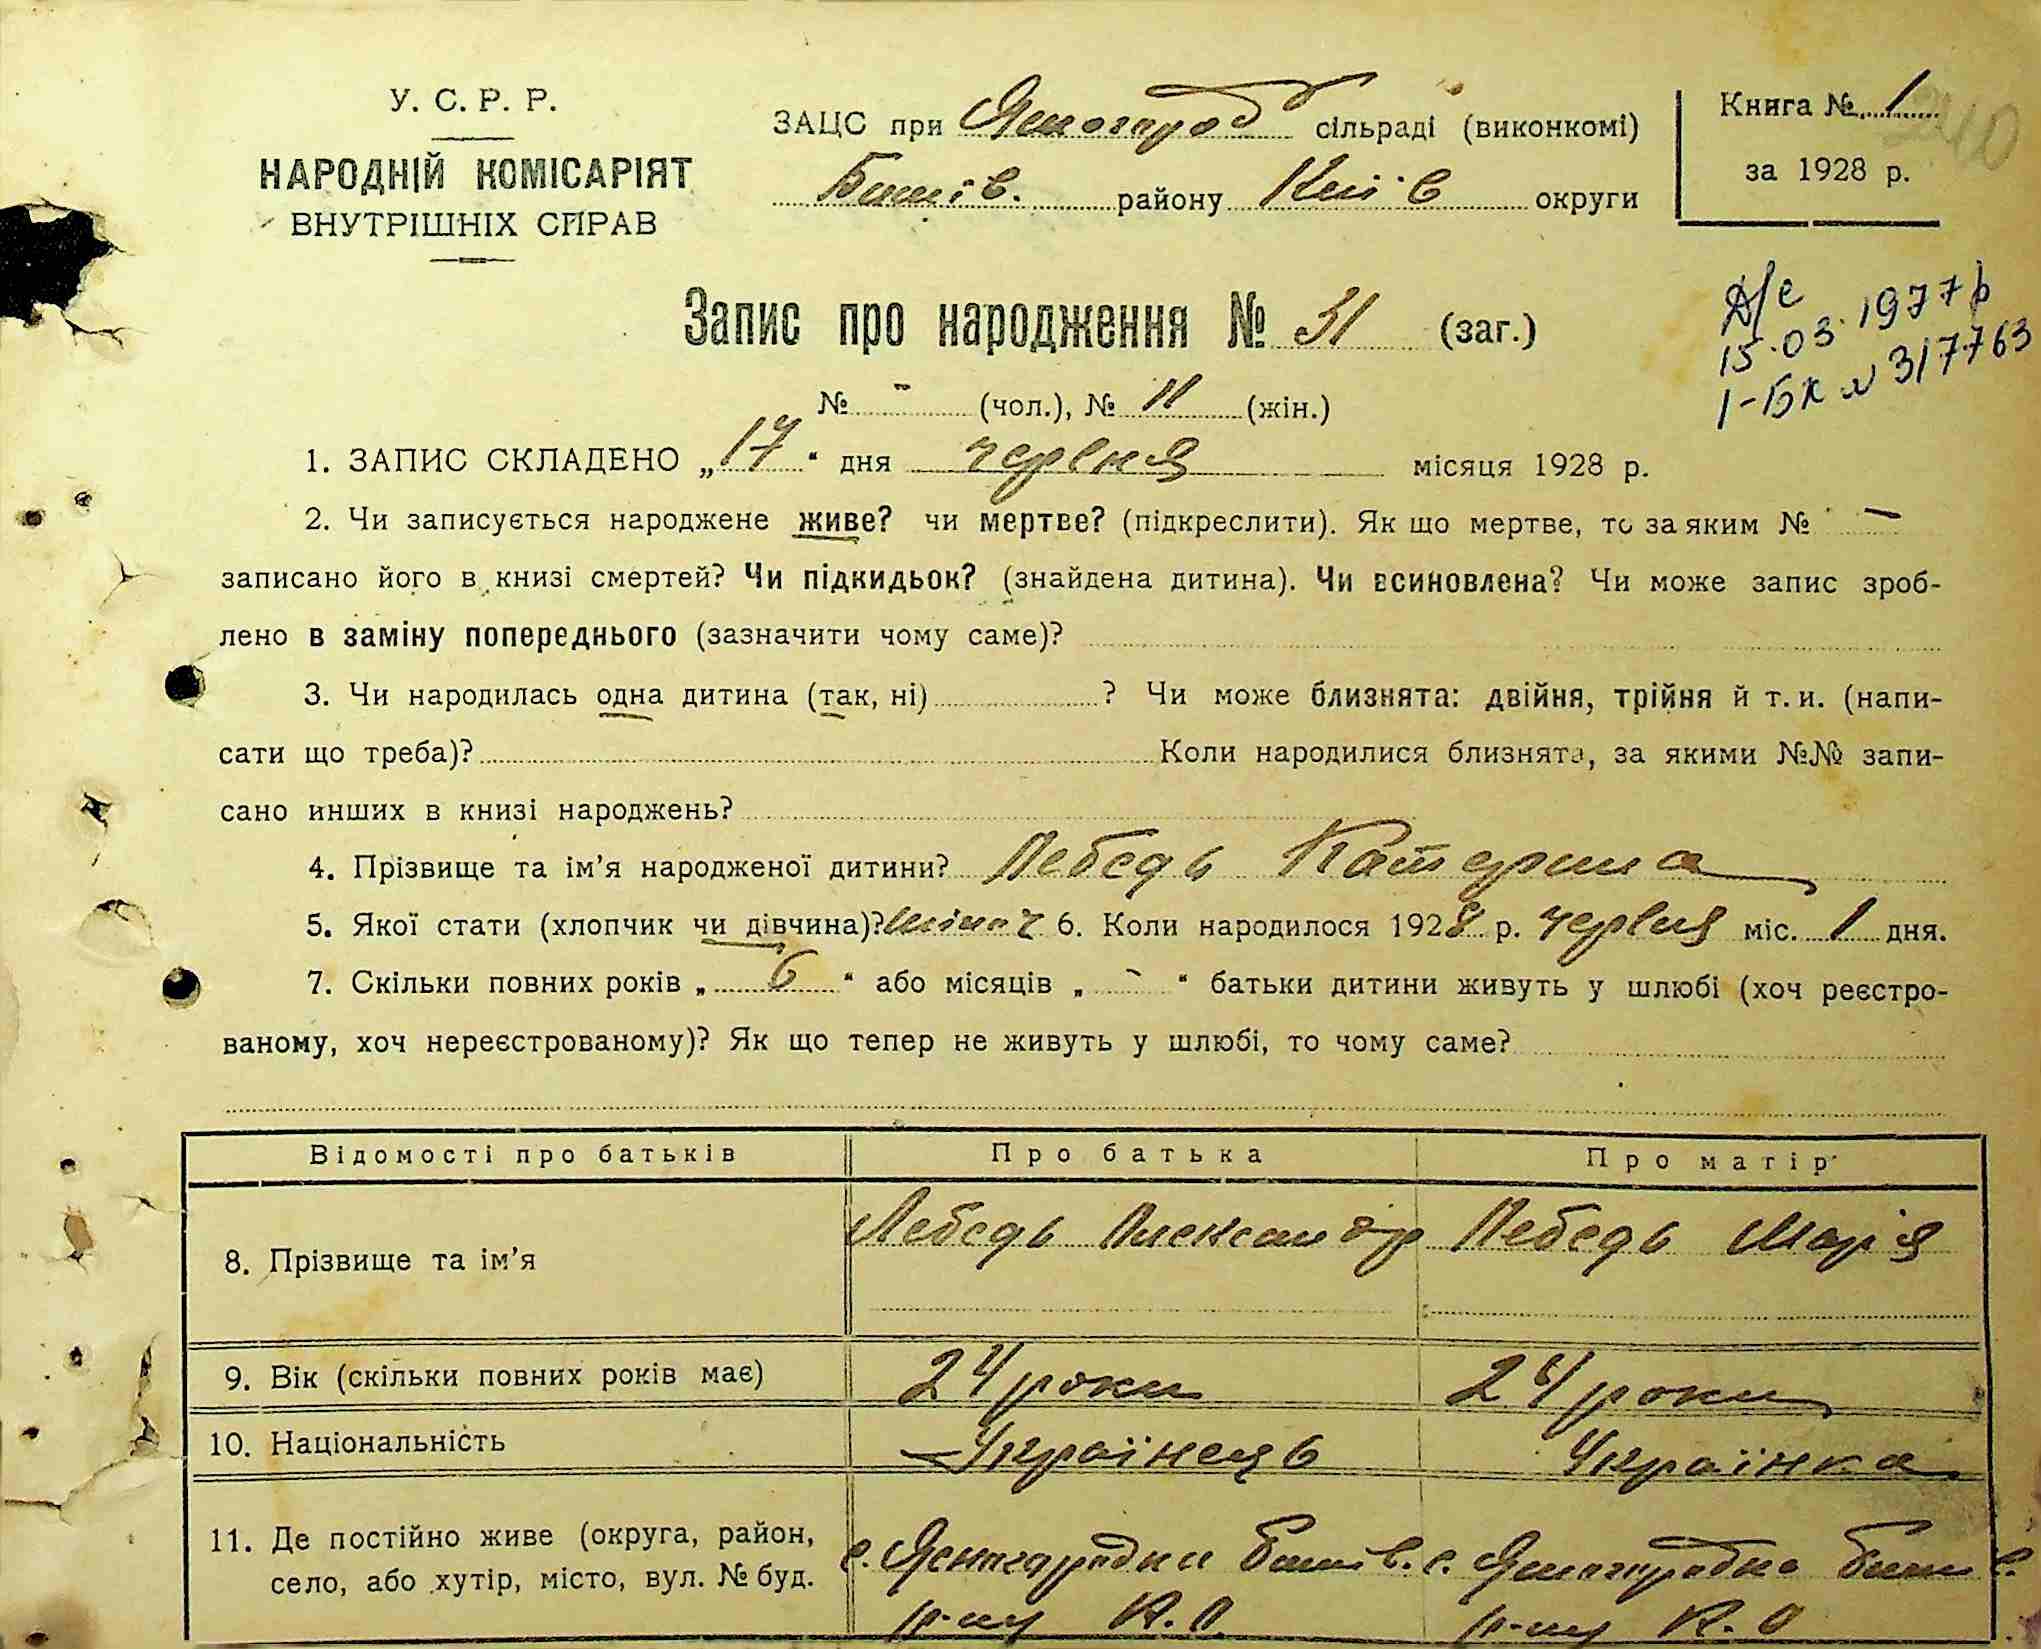 У. С. Р. Р.
НАРОДНІЙ КОМІСАРІЯТ
ВНУТРІШНІХ СПРАВ
ЗАЦС при Ясногород сільраді (виконкомі)
Бишів. району Київ округи
Книга № 1
за 1928 р.
Запис про народження № 31 (заг.)
15.03.1977р
1-БК № 317763
№ - (чол.), № 11 (жін.)
1. ЗАПИС СКЛАДЕНО „17“ дня червня місяця 1928 р.
2. Чи записується народжене живе? чи мертве? (підкреслити). Як що мертве, то за яким № —
записано його в книзі смертей? Чи підкидьок? (знайдена дитина). Чи всиновлена? Чи може запис зроб-
лено в заміну попереднього (зазначити чому саме)?
3. Чи народилась одна дитина (так, ні) ? Чи може близнята: двійня, трійня й т. и. (напи-
сати що треба)? Коли народилися близнята, за якими №№ запи-
сано инших в книзі народжень?
4. Прізвище та ім'я народженої дитини? Лебедь Катерина
5. Якої стати (хлопчик чи дівчина)? жіноч 6. Коли народилося 1928 р. червня міс. 1 дня.
7. Скільки повних років „6“ або місяців „-“ батьки дитини живуть у шлюбі (хоч реєстро-
ваному, хоч нереєстрованому)? Як що тепер не живуть у шлюбі, то чому саме?
Відомості про батьків Про батька Про матір
8. Прізвище та ім'я Лебедь Олександр Лебедь Марія
9. Вік (скільки повних років має) 24 роки 24 роки
10. Національність Українець Українка
11. Де постійно живе (округа, район, с. Ясногородка Бишів. с. Ясногородка Бишів.
село, або хутір, місто, вул. № буд. р-ну К.О. р-ну К.О